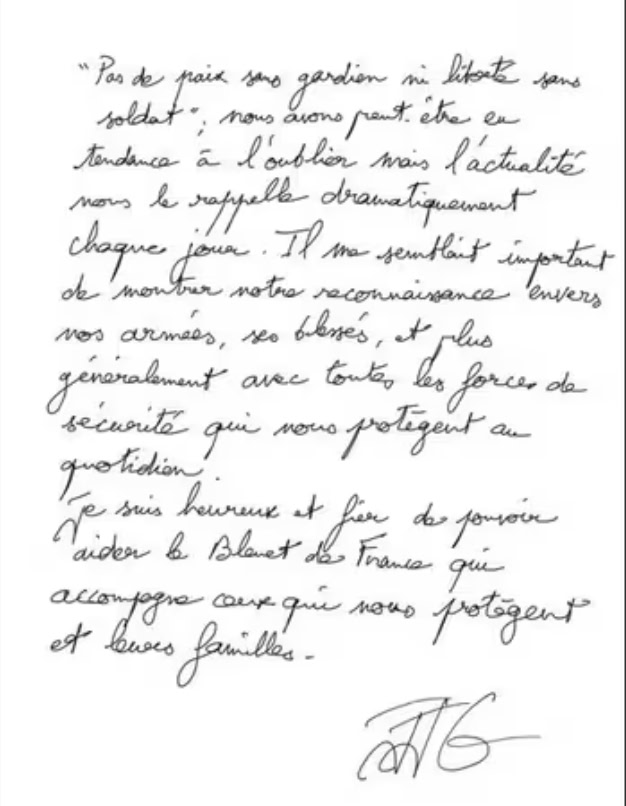 "Pas de paix sans gardien ni liberté sans
soldat", nous avons peut-être eu
tendance à l'oublier mais l'actualité
nous le rappelle dramatiquement
chaque jour. Il me semblait important
de montrer notre reconnaissance envers
nos armées, ses blessés, et plus
généralement avec toutes les forces de
sécurité qui nous protègent au
quotidien.
Je suis heureux et fier de pouvoir
aider le Bleuet de France qui
accompagne ceux qui nous protègent
et leurs familles.